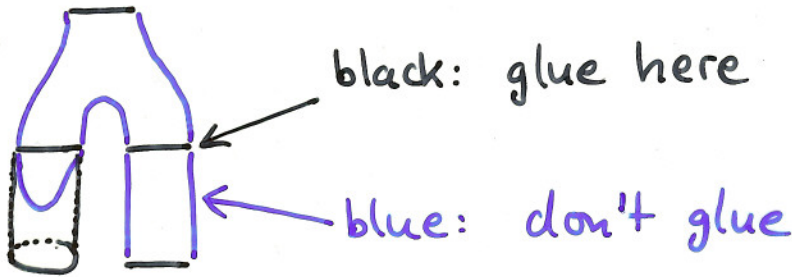 black: glue here
blue: don't glue